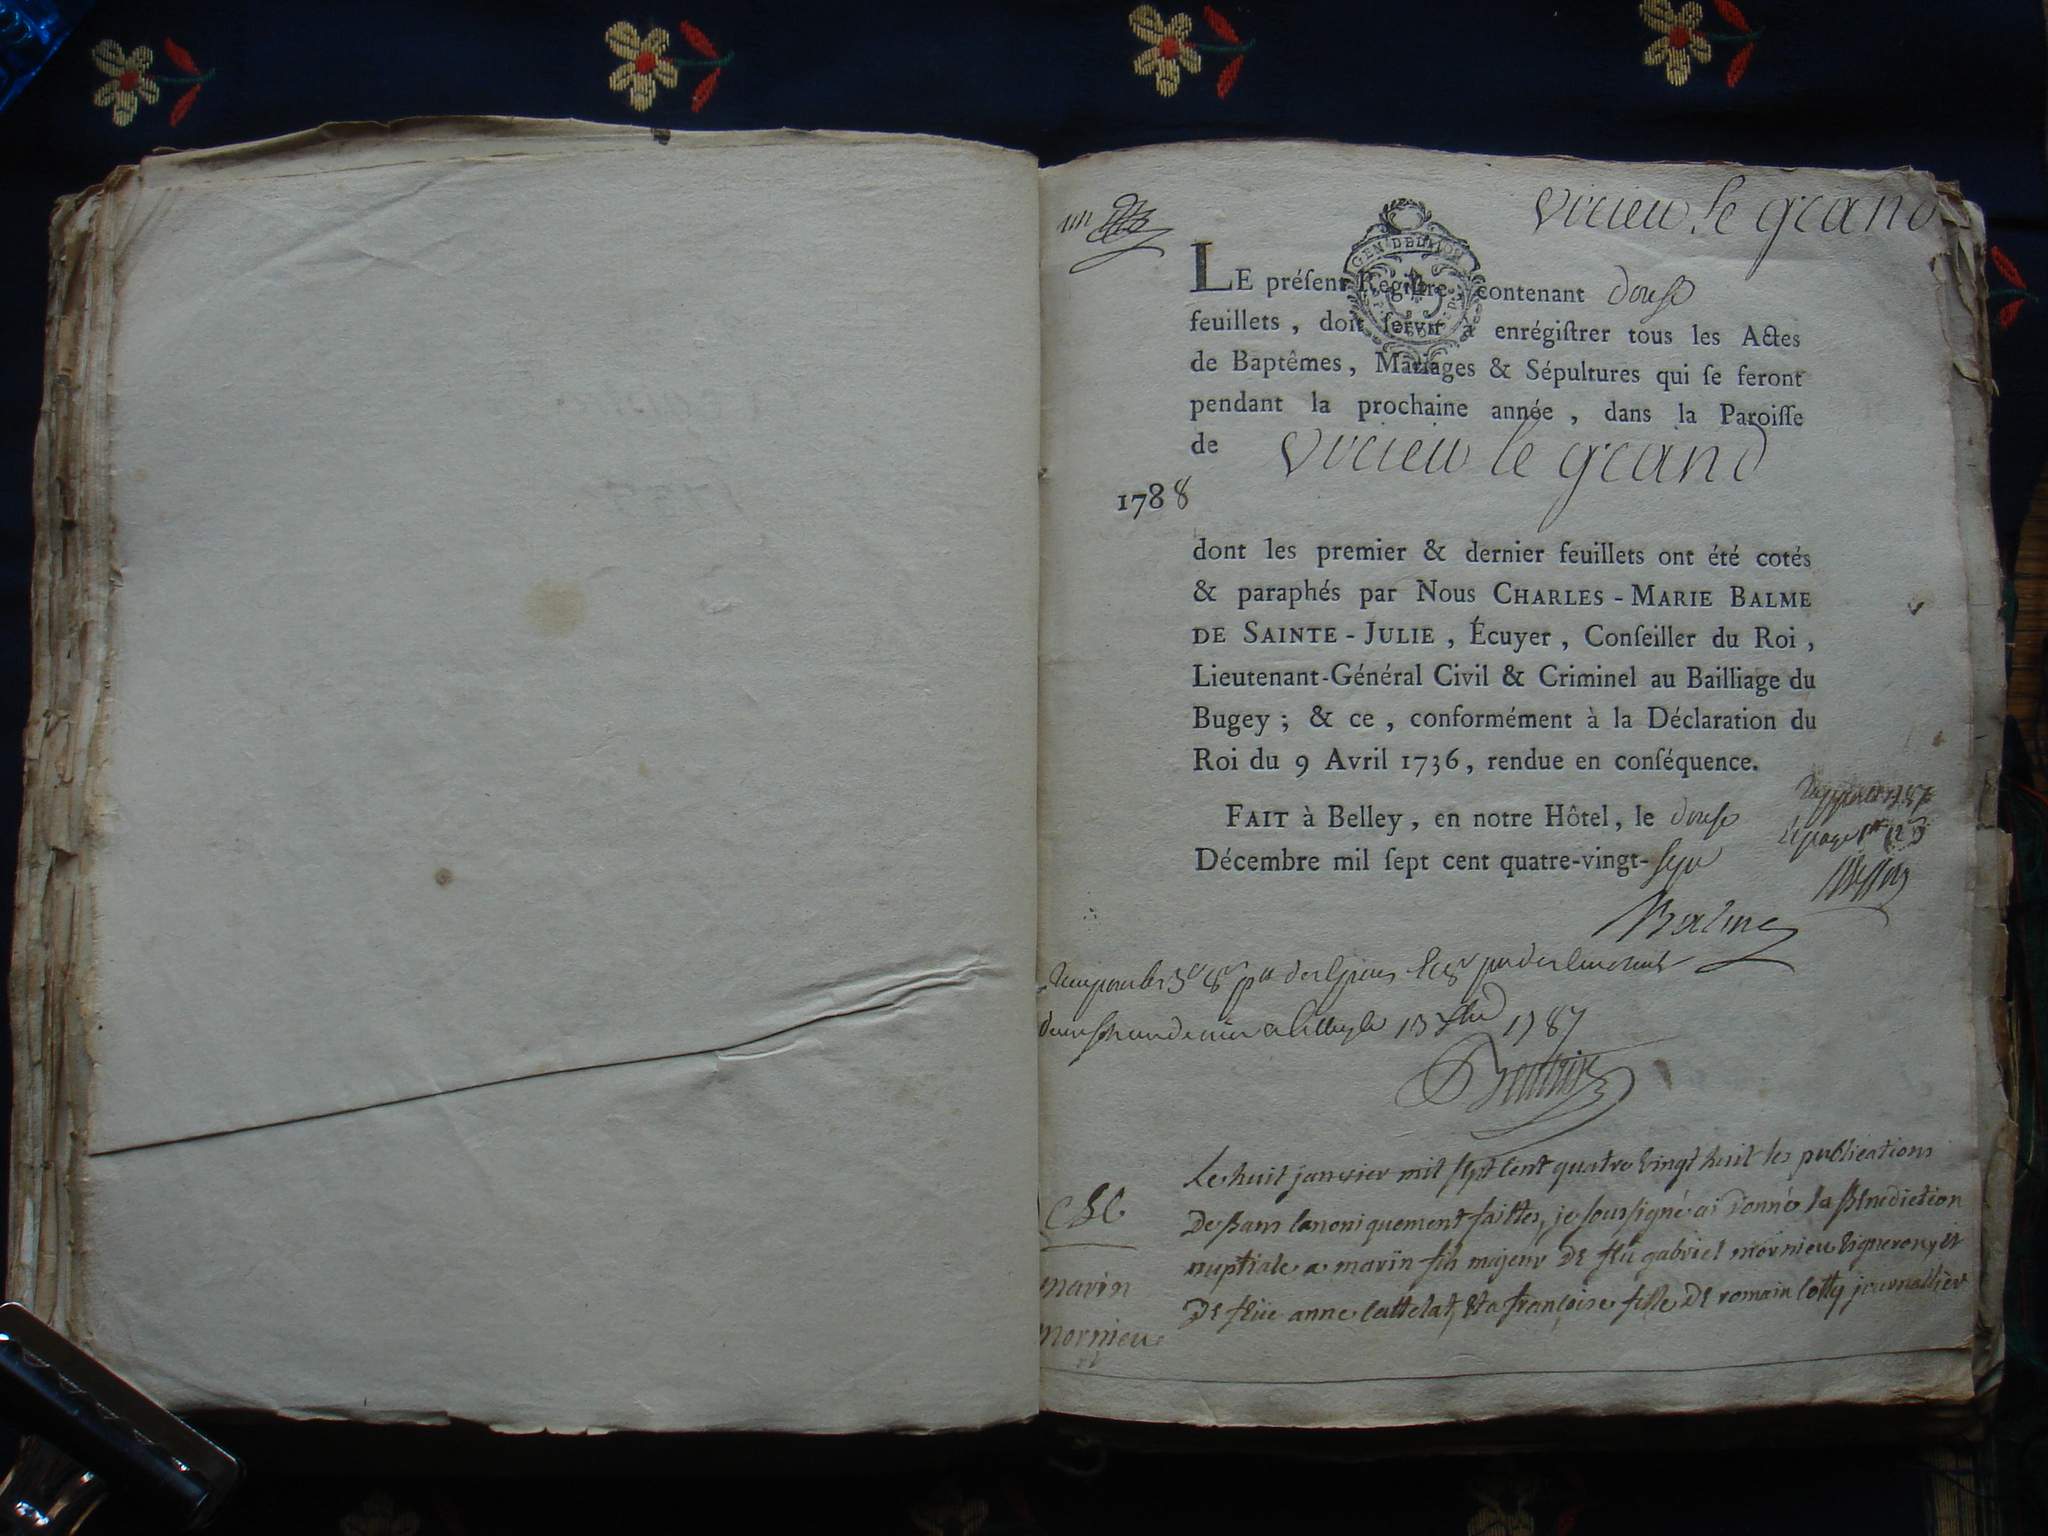 un
virieu le grand
GEN DE DIJON
LE préſent Regiſtre, contenant douse
feuillets, doit ſervir à enrégiſtrer tous les Actes
de Baptêmes, Mariages & Sépultures qui ſe feront
pendant la prochaine année, dans la Paroiſſe
de virieu le grand
1788
dont les premier & dernier feuillets ont été cotés
& paraphés par Nous CHARLES-MARIE BALME
DE SAINTE-JULIE, Écuyer, Conſeiller du Roi,
Lieutenant-Général Civil & Criminel au Bailliage du
Bugey; & ce, conformément à la Déclaration du
Roi du 9 Avril 1736, rendue en conſéquence.
FAIT à Belley, en notre Hôtel, le douse
Décembre mil ſept cent quatre-vingt-sept
Balme
1787
Le huit janvier mil sept cent quatre vingt huit les publications
De Bans canoniquement faittes, je soussigné ai Donné la Bénédiction
nuptiale a marin fils majeur De feu gabriel mornieu vigneron, et
De feüe anne cattelat, et a françoise fille De romain cotty journallier
marin
mornieu
et